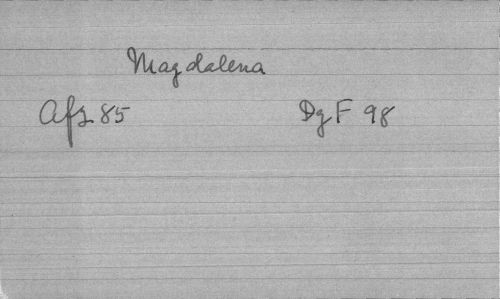 Magdalena
Afz 85 Dg F 98